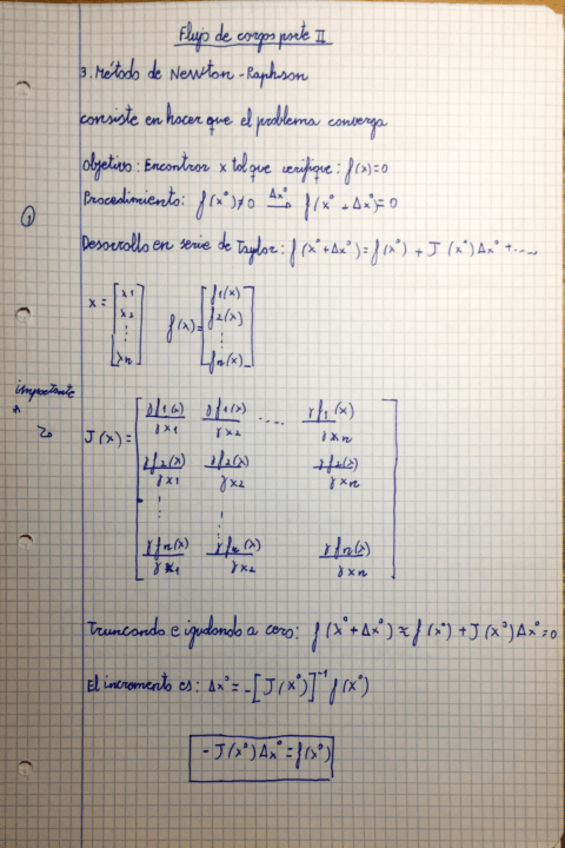 Flujo de cargas parte II
3. Método de Newton-Raphson
consiste en hacer que el problema converga
Objetivo: Encontrar x tal que verifique: f(x)=0
Procedimiento: f(x⁰)≠0 →(Δx⁰) f(x⁰+Δx⁰)=0
①
Desarrollo en serie de Taylor: f(x⁰+Δx⁰)=f(x⁰)+J(x⁰)Δx⁰+....
x = [x1 x2 ⋮ xn] f(x)= [f1(x) f2(x) ⋮ fn(x)]
importante
J(x)= [ɣf1(x)/ɣx1 ɣf1(x)/ɣx2 .... ɣf1(x)/ɣxn
ɣf2(x)/ɣx1 ɣf2(x)/ɣx2 ɣf2(x)/ɣxn
⋮ ⋮
ɣfn(x)/ɣx1 ɣfn(x)/ɣx2 ɣfn(x)/ɣxn]
Truncando e igualando a cero: f(x⁰+Δx⁰)≈f(x⁰)+J(x⁰)Δx⁰=0
El incremento es: Δx⁰=-[J(x⁰)]⁻¹f(x⁰)
-J(x⁰)Δx⁰=f(x⁰)